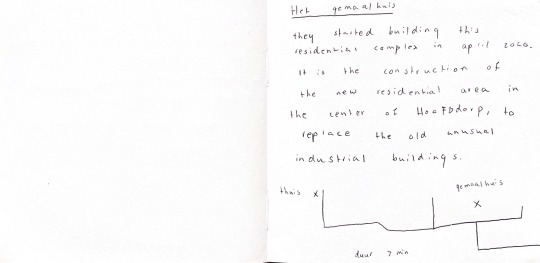 Het gemaalhuis
they started building this
residential complex in april 2020.
It is the construction of
the new residential area in
the center of HooFDdorp, to
replace the old unusual
industrial buildings.
thuis x
gemaalhuis
x
duur 7 min